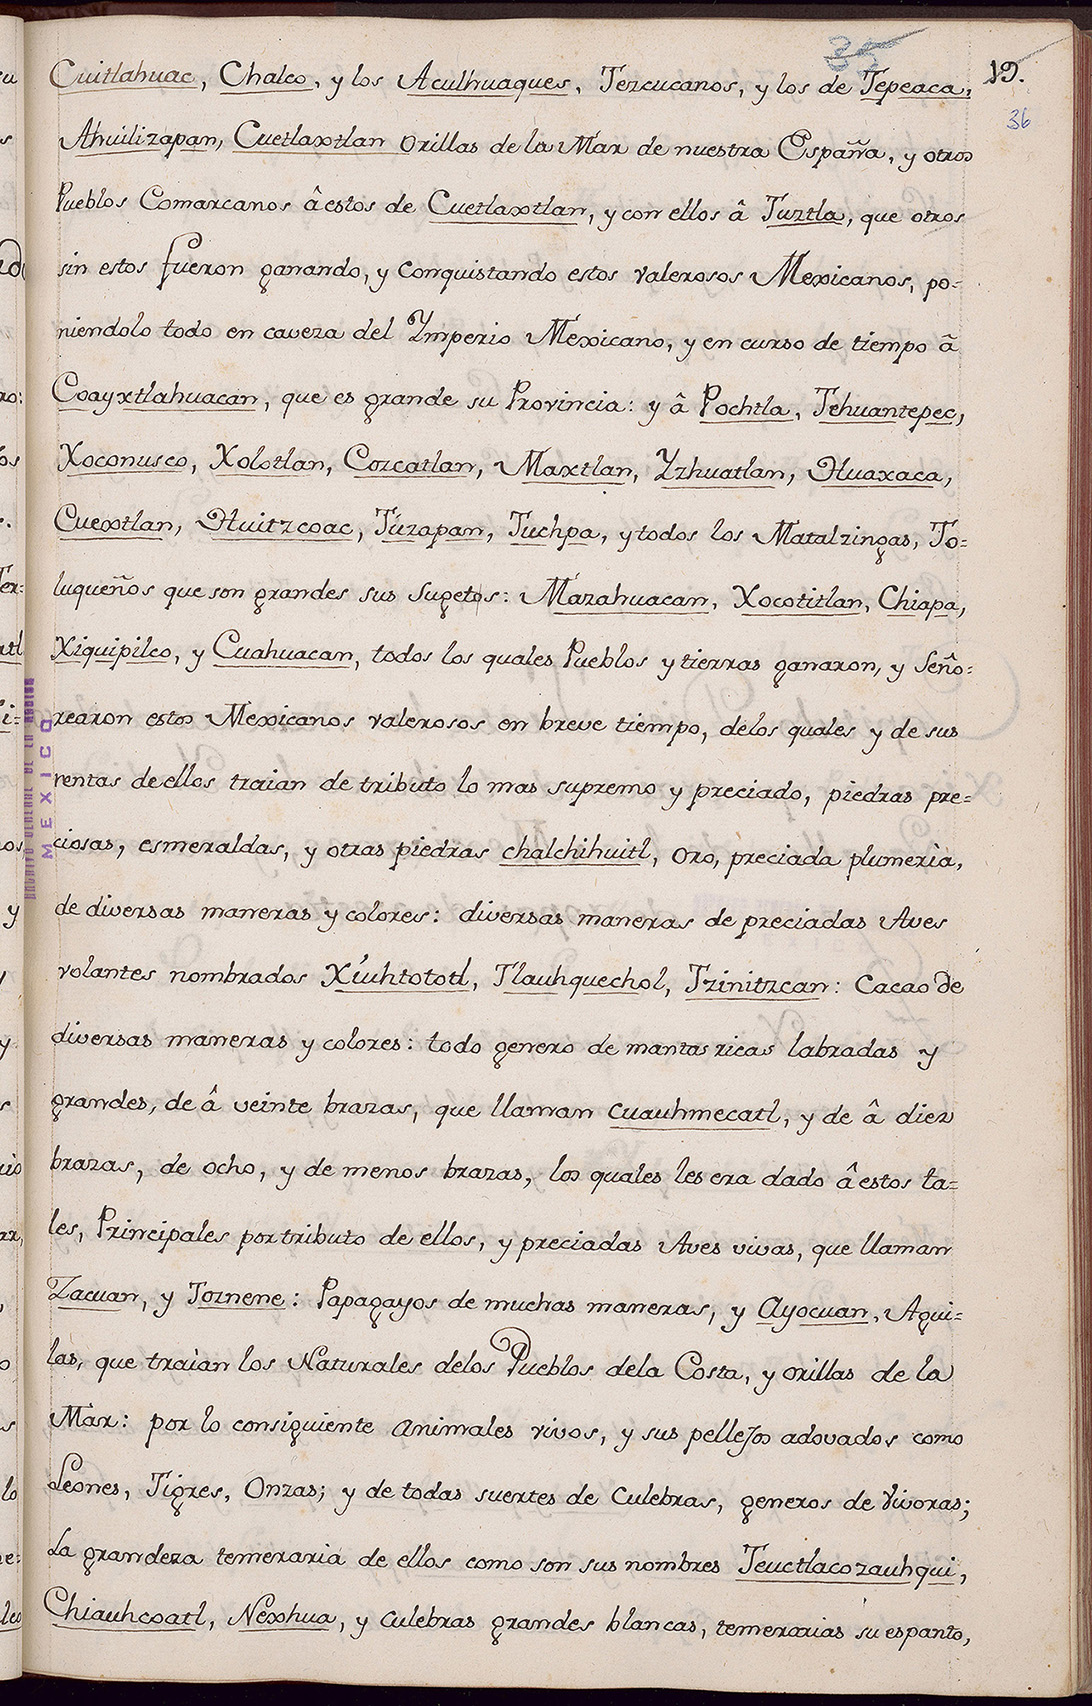 35 19.
36
Cuitlahuac, Chalco, y los Aculhuaques, Tezcucanos, y los de Tepeaca,
Ahuilizapan, Cuetlaxtlan orillas de la Mar de nuestra España, y otros
Pueblos Comarcanos â estos de Cuetlaxtlan, y con ellos â Tuztla, que otros
sin estos fueron ganando, y conquistando estos valerosos Mexicanos, po-
niendolo todo en caveza del Ymperio Mexicano, y en curso de tiempo â
Coayxtlahuacan, que es grande su Provincia: y â Pochtla, Tehuantepec,
Xoconusco, Xolotlan, Cozcatlan, Maxtlan, Yzhuatlan, Huaxaca,
Cuextlan, Huitzcoac, Túzapan, Tuchpa, y todos los Matalzingas, To=
luqueños que son grandes sus sugetos: Mazahuacan, Xocotitlan, Chiapa,
Xiquipilco, y Cuahuacan, todos los quales Pueblos y tierras ganaron, y Seño=
rearon estos Mexicanos valerosos en breve tiempo, delos quales y de sus
rentas de ellos traian de tributo lo mas supremo y preciado, piedras pre=
ciosas, esmeraldas, y otras piedras chalchihuitl, oro, preciada plumerìa,
de diversas maneras y colores: diversas maneras de preciadas Aves
volantes nombrados Xíuhtototl, Tlauhquechol, Tzinitzcan: Cacao de
diversas maneras y colores: todo genero de mantas ricas labradas y
grandes, de â veinte brazas, que llaman cuauhmecatl, y de â diez
brazas, de ocho, y de menos brazas, los quales les era dado â estos ta=
les, Principales por tributo de ellos, y preciadas Aves vivas, que llaman
Zacuan, y Toznene: Papagayos de muchas maneras, y Ayocuan, Agui=
las, que traìan los Naturales delos Pueblos dela Costa, y orillas de la
Mar: por lo consiguiente animales vivos, y sus pellejos adovados como
Leones, Tigres, Onzas; y de todas suertes de Culebras, generos de Vivoras;
La grandeza temeraria de ellos como son sus nombres Teuctlacozauhqui,
Chiauhcoatl, Nexhua, y culebras grandes blancas, temerarias su espanto,
ARCHIVO GENERAL DE LA NACION
MEXICO